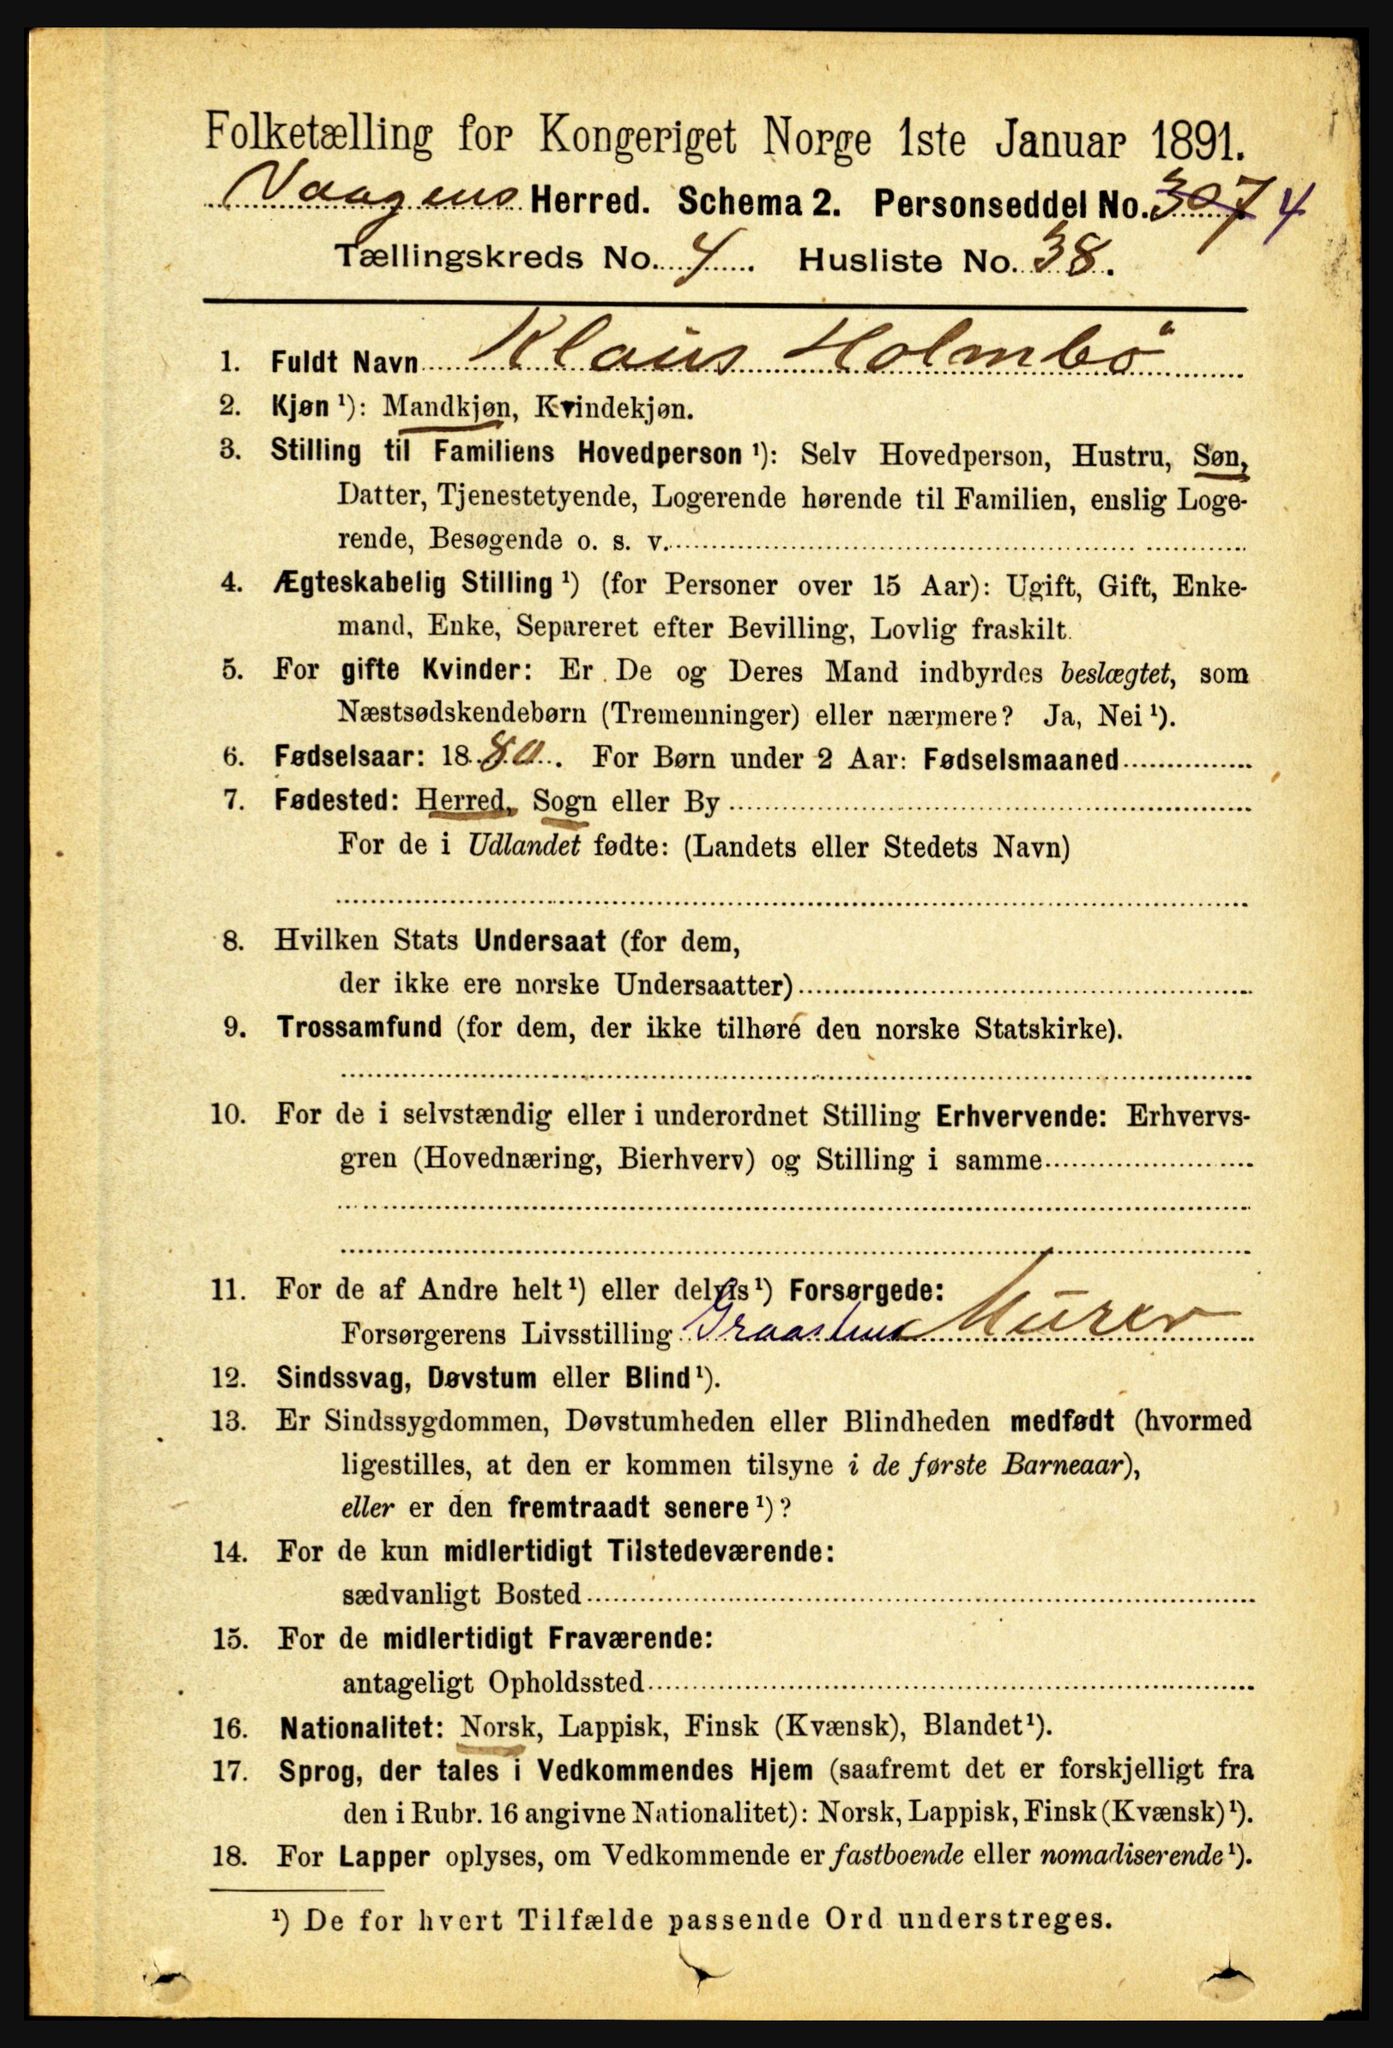 Folketælling for Kongeriget Norge 1ste Januar 1891.
Vaagens Herred. Schema 2. Personseddel No. 307 4
Tællingskreds No. 4. Husliste No. 38.
1. Fuldt Navn Klaus Holmbö
2. Kjøn ¹): Mandkjøn, Kvindekjøn.
3. Stilling til Familiens Hovedperson ¹): Selv Hovedperson, Hustru, Søn,
Datter, Tjenestetyende, Logerende hørende til Familien, enslig Loge-
rende, Besøgende o. s. v.
4. Ægteskabelig Stilling ¹) (for Personer over 15 Aar): Ugift, Gift, Enke-
mand, Enke, Separeret efter Bevilling, Lovlig fraskilt.
5. For gifte Kvinder: Er De og Deres Mand indbyrdes beslægtet, som
Næstsødskendebørn (Tremenninger) eller nærmere? Ja, Nei ¹).
6. Fødselsaar: 1880. For Børn under 2 Aar: Fødselsmaaned
7. Fødested: Herred, Sogn eller By
For de i Udlandet fødte: (Landets eller Stedets Navn)
8. Hvilken Stats Undersaat (for dem,
der ikke ere norske Undersaatter)
9. Trossamfund (for dem, der ikke tilhøre den norske Statskirke).
10. For de i selvstændig eller i underordnet Stilling Erhvervende: Erhvervs-
gren (Hovednæring, Bierhverv) og Stilling i samme
11. For de af Andre helt ¹) eller delvis ¹) Forsørgede:
Forsørgerens Livsstilling Graasten Murer
12. Sindssvag, Døvstum eller Blind ¹).
13. Er Sindssygdommen, Døvstumheden eller Blindheden medfødt (hvormed
ligestilles, at den er kommen tilsyne i de første Barneaar),
eller er den fremtraadt senere ¹)?
14. For de kun midlertidigt Tilstedeværende:
sædvanligt Bosted
15. For de midlertidigt Fraværende:
antageligt Opholdssted
16. Nationalitet: Norsk, Lappisk, Finsk (Kvænsk), Blandet ¹).
17. Sprog, der tales i Vedkommendes Hjem (saafremt det er forskjelligt fra
den i Rubr. 16 angivne Nationalitet): Norsk, Lappisk, Finsk (Kvænsk) ¹).
18. For Lapper oplyses, om Vedkommende er fastboende eller nomadiserende ¹).
¹) De for hvert Tilfælde passende Ord understreges.